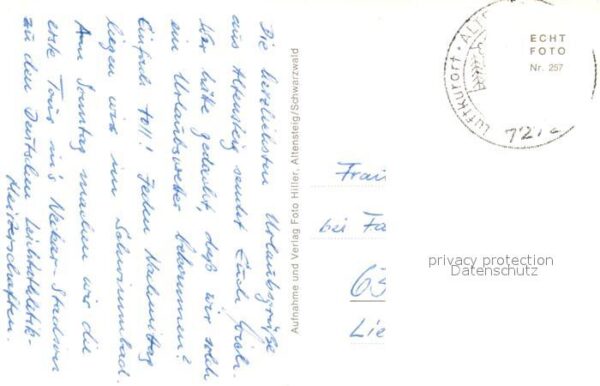 Die herzlichsten Urlaubsgrüße
aus Altensteig sendet Euch
Wer hätte gedacht, daß wir solch
ein Urlaubswetter bekommen?
Einfach toll! Jeden Nachmittag
liegen wir im Schwimmbad.
Am Sonntag machen wir die
erste Tour in's Neckar-Stadion
zu den Deutschen Leichtathletik-
Meisterschaften.
Aufnahme und Verlag Foto Hiller, Altensteig/Schwarzwald
Luftkurort · ALTE
7272
ECHT
FOTO
Nr. 257
Frau
bei Fa
63
Lie
privacy protection
Datenschutz